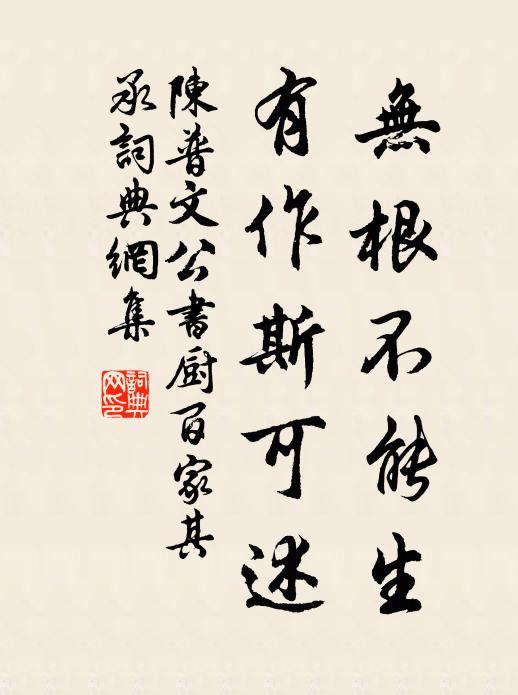 無根不能生
有作斯可述
陳普文公書厨百家其
承詞典網集
詞典网印